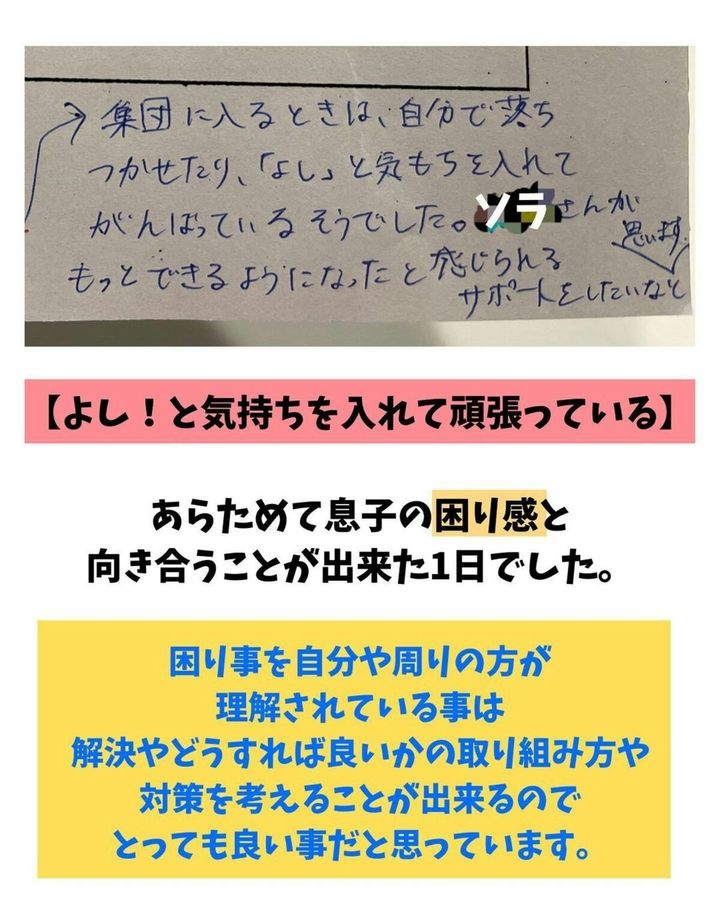 集団に入るときは、自分で落ち
つかせたり、「よし」と気もちを入れて
がんばっているそうでした。ソラさんが
もっとできるようになったと感じられる
サポートをしたいなと
思います。
【よし！と気持ちを入れて頑張っている】
あらためて息子の困り感と
向き合うことが出来た1日でした。
困り事を自分や周りの方が
理解されている事は
解決やどうすれば良いかの取り組み方や
対策を考えることが出来るので
とっても良い事だと思っています。